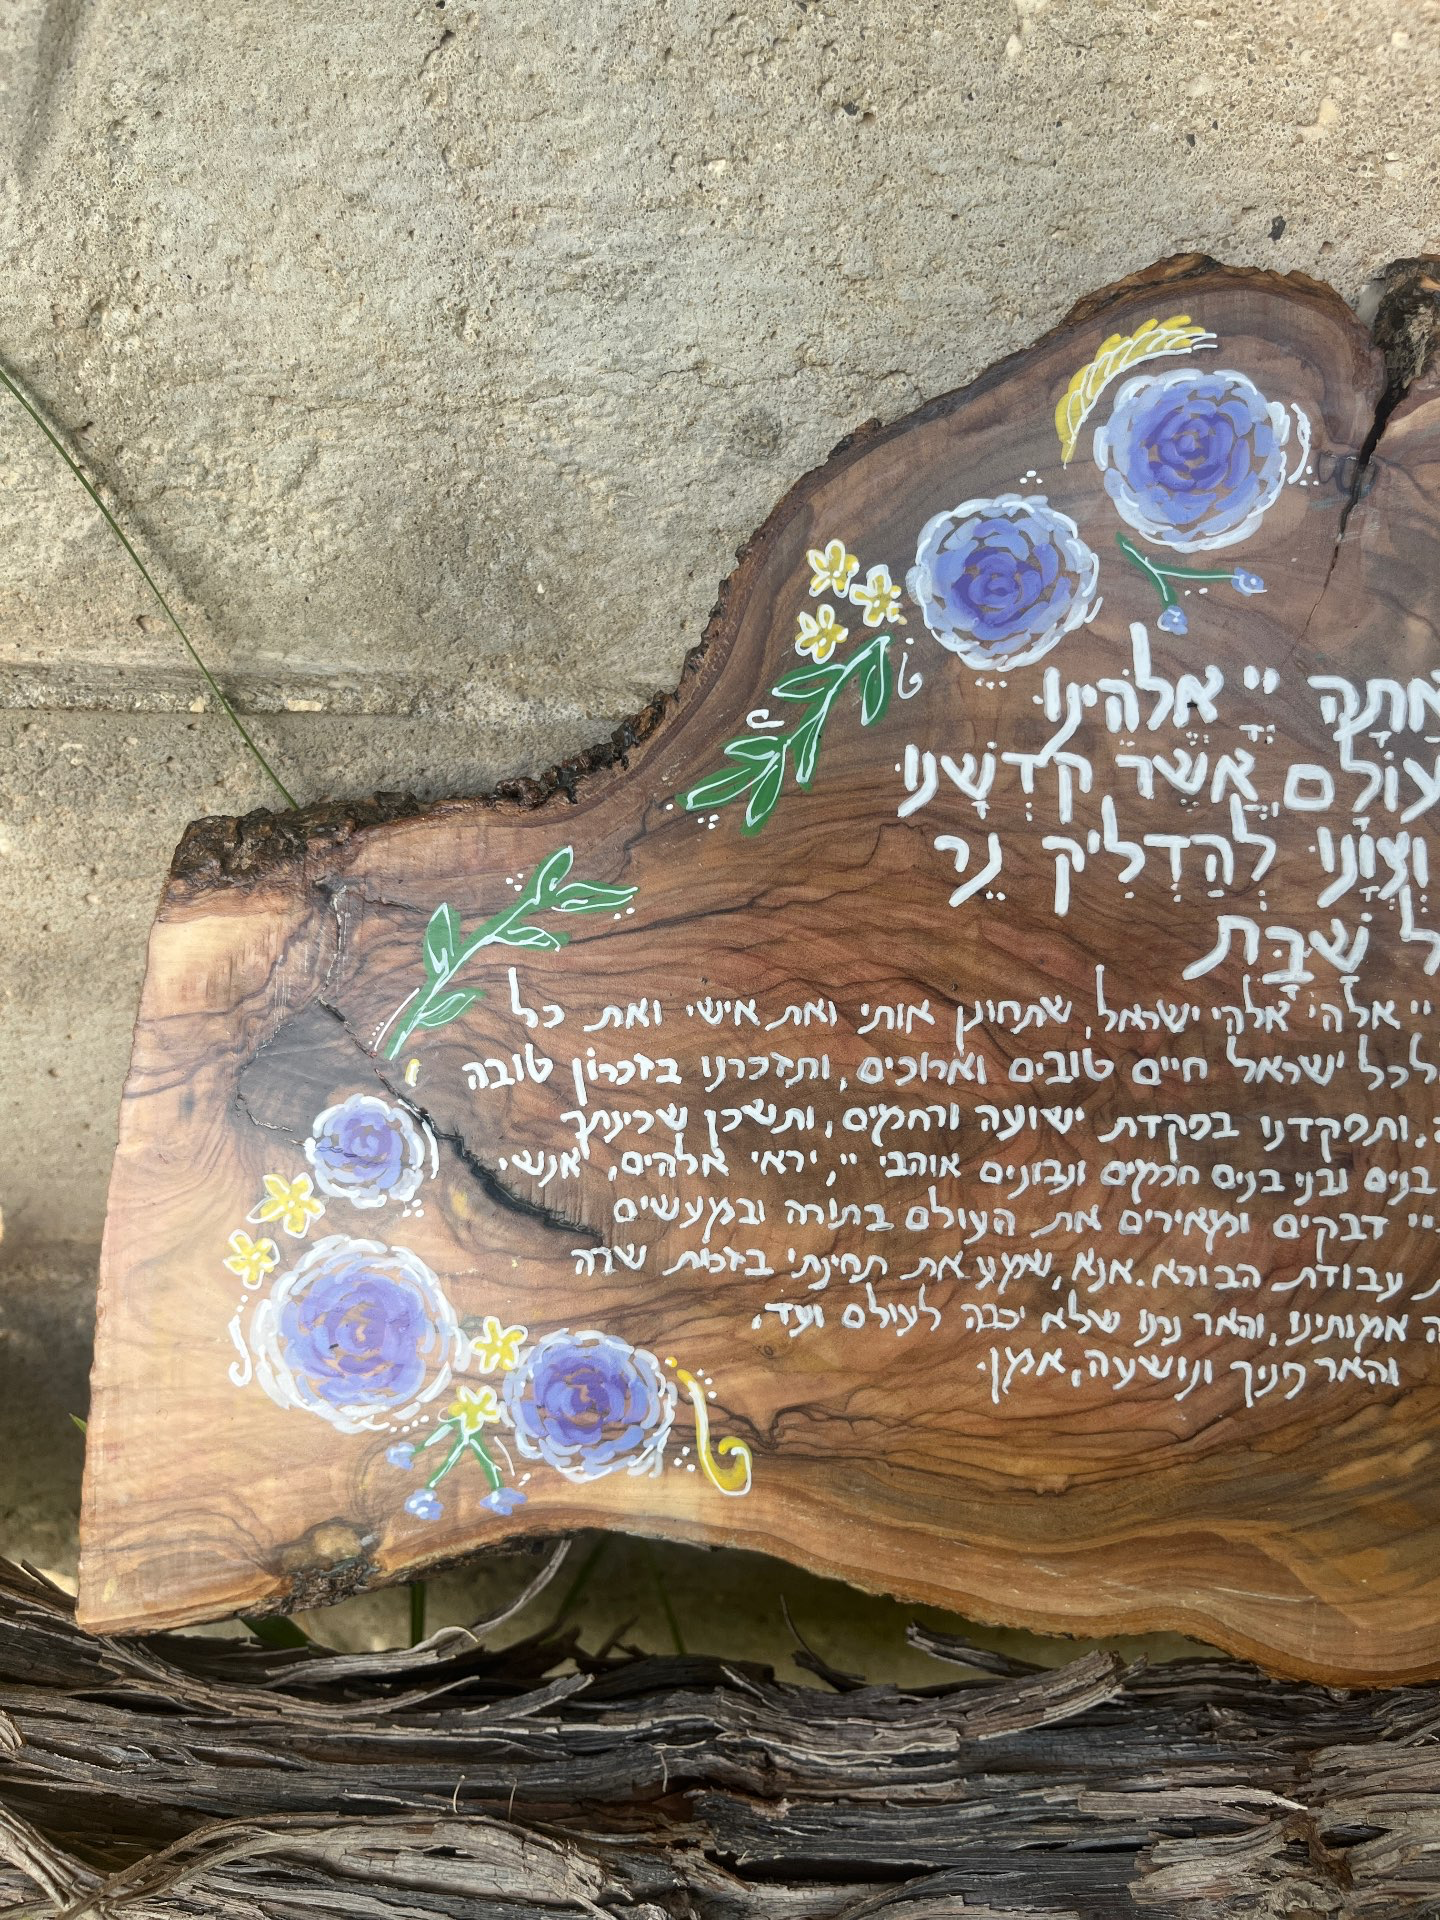 אַתָּה יְיָ אֱלֹהֵינוּ
עוֹלָם אֲשֶׁר קִדְּשָׁנוּ
וְצִוָּנוּ לְהַדְלִיק נֵר
ל שַׁבָּת
יי אלהי אלהי ישראל, שתחונן אותי ואת אישי ואת כל
לכל ישראל חיים טובים וארוכים, ותזכרנו בזכרון טובה
ותפקדנו בפקדת ישועה ורחמים, ותשכן שכינתך
בנים ובני בנים חכמים ונבונים אוהבי יי, יראי אלהים, אנשי
ביי דבקים ומאירים את העולם בתורה ובמעשים
ת עבודת הבורא. אנא, שמע את תחינתי בזכות שרה
אמותינו, והאר נרנו שלא יכבה לעולם ועד,
והאר פניך ונושעה, אמן.